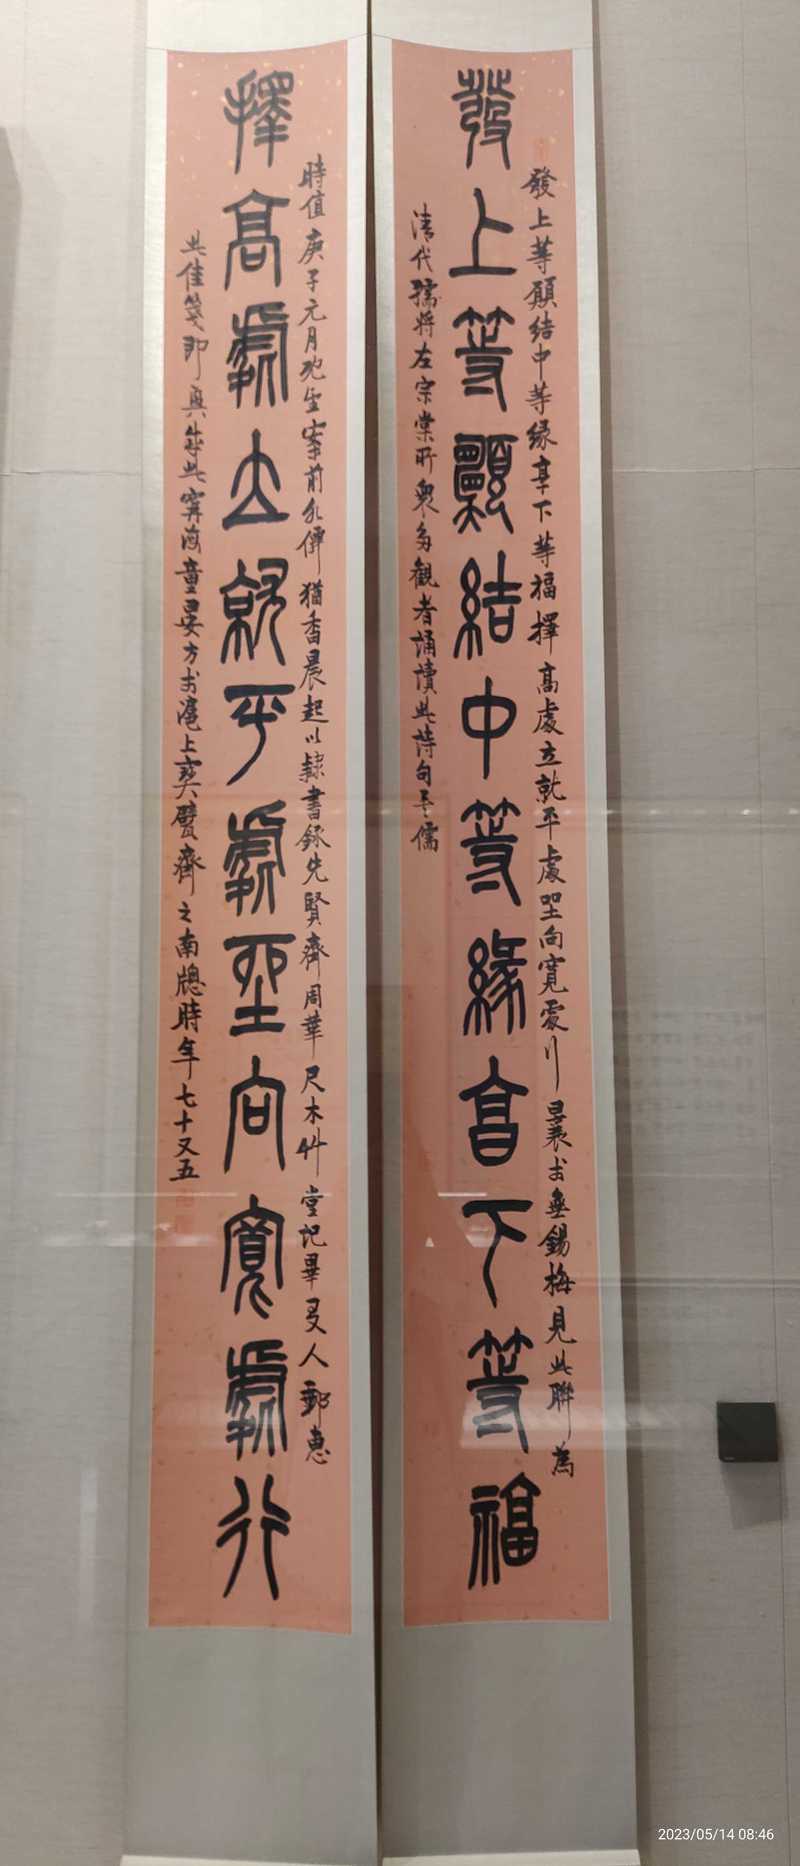 發上等願結中等緣享下等福
發上等願結中等緣享下等福擇高處立就平處坐向寬處行曩於無錫梅見此聯為
清代儒將左宗棠所眾多觀者誦讀此詩句
擇高處立就平處坐向寬處行
時值庚子元月案前水僊猶香晨起以隸書錄先賢齊周華尺木堂記畢友人郵惠
此佳箋即興成此寧海童晏方於滬上奭甓齋之南牕時年七十又五
2023/05/14 08:46